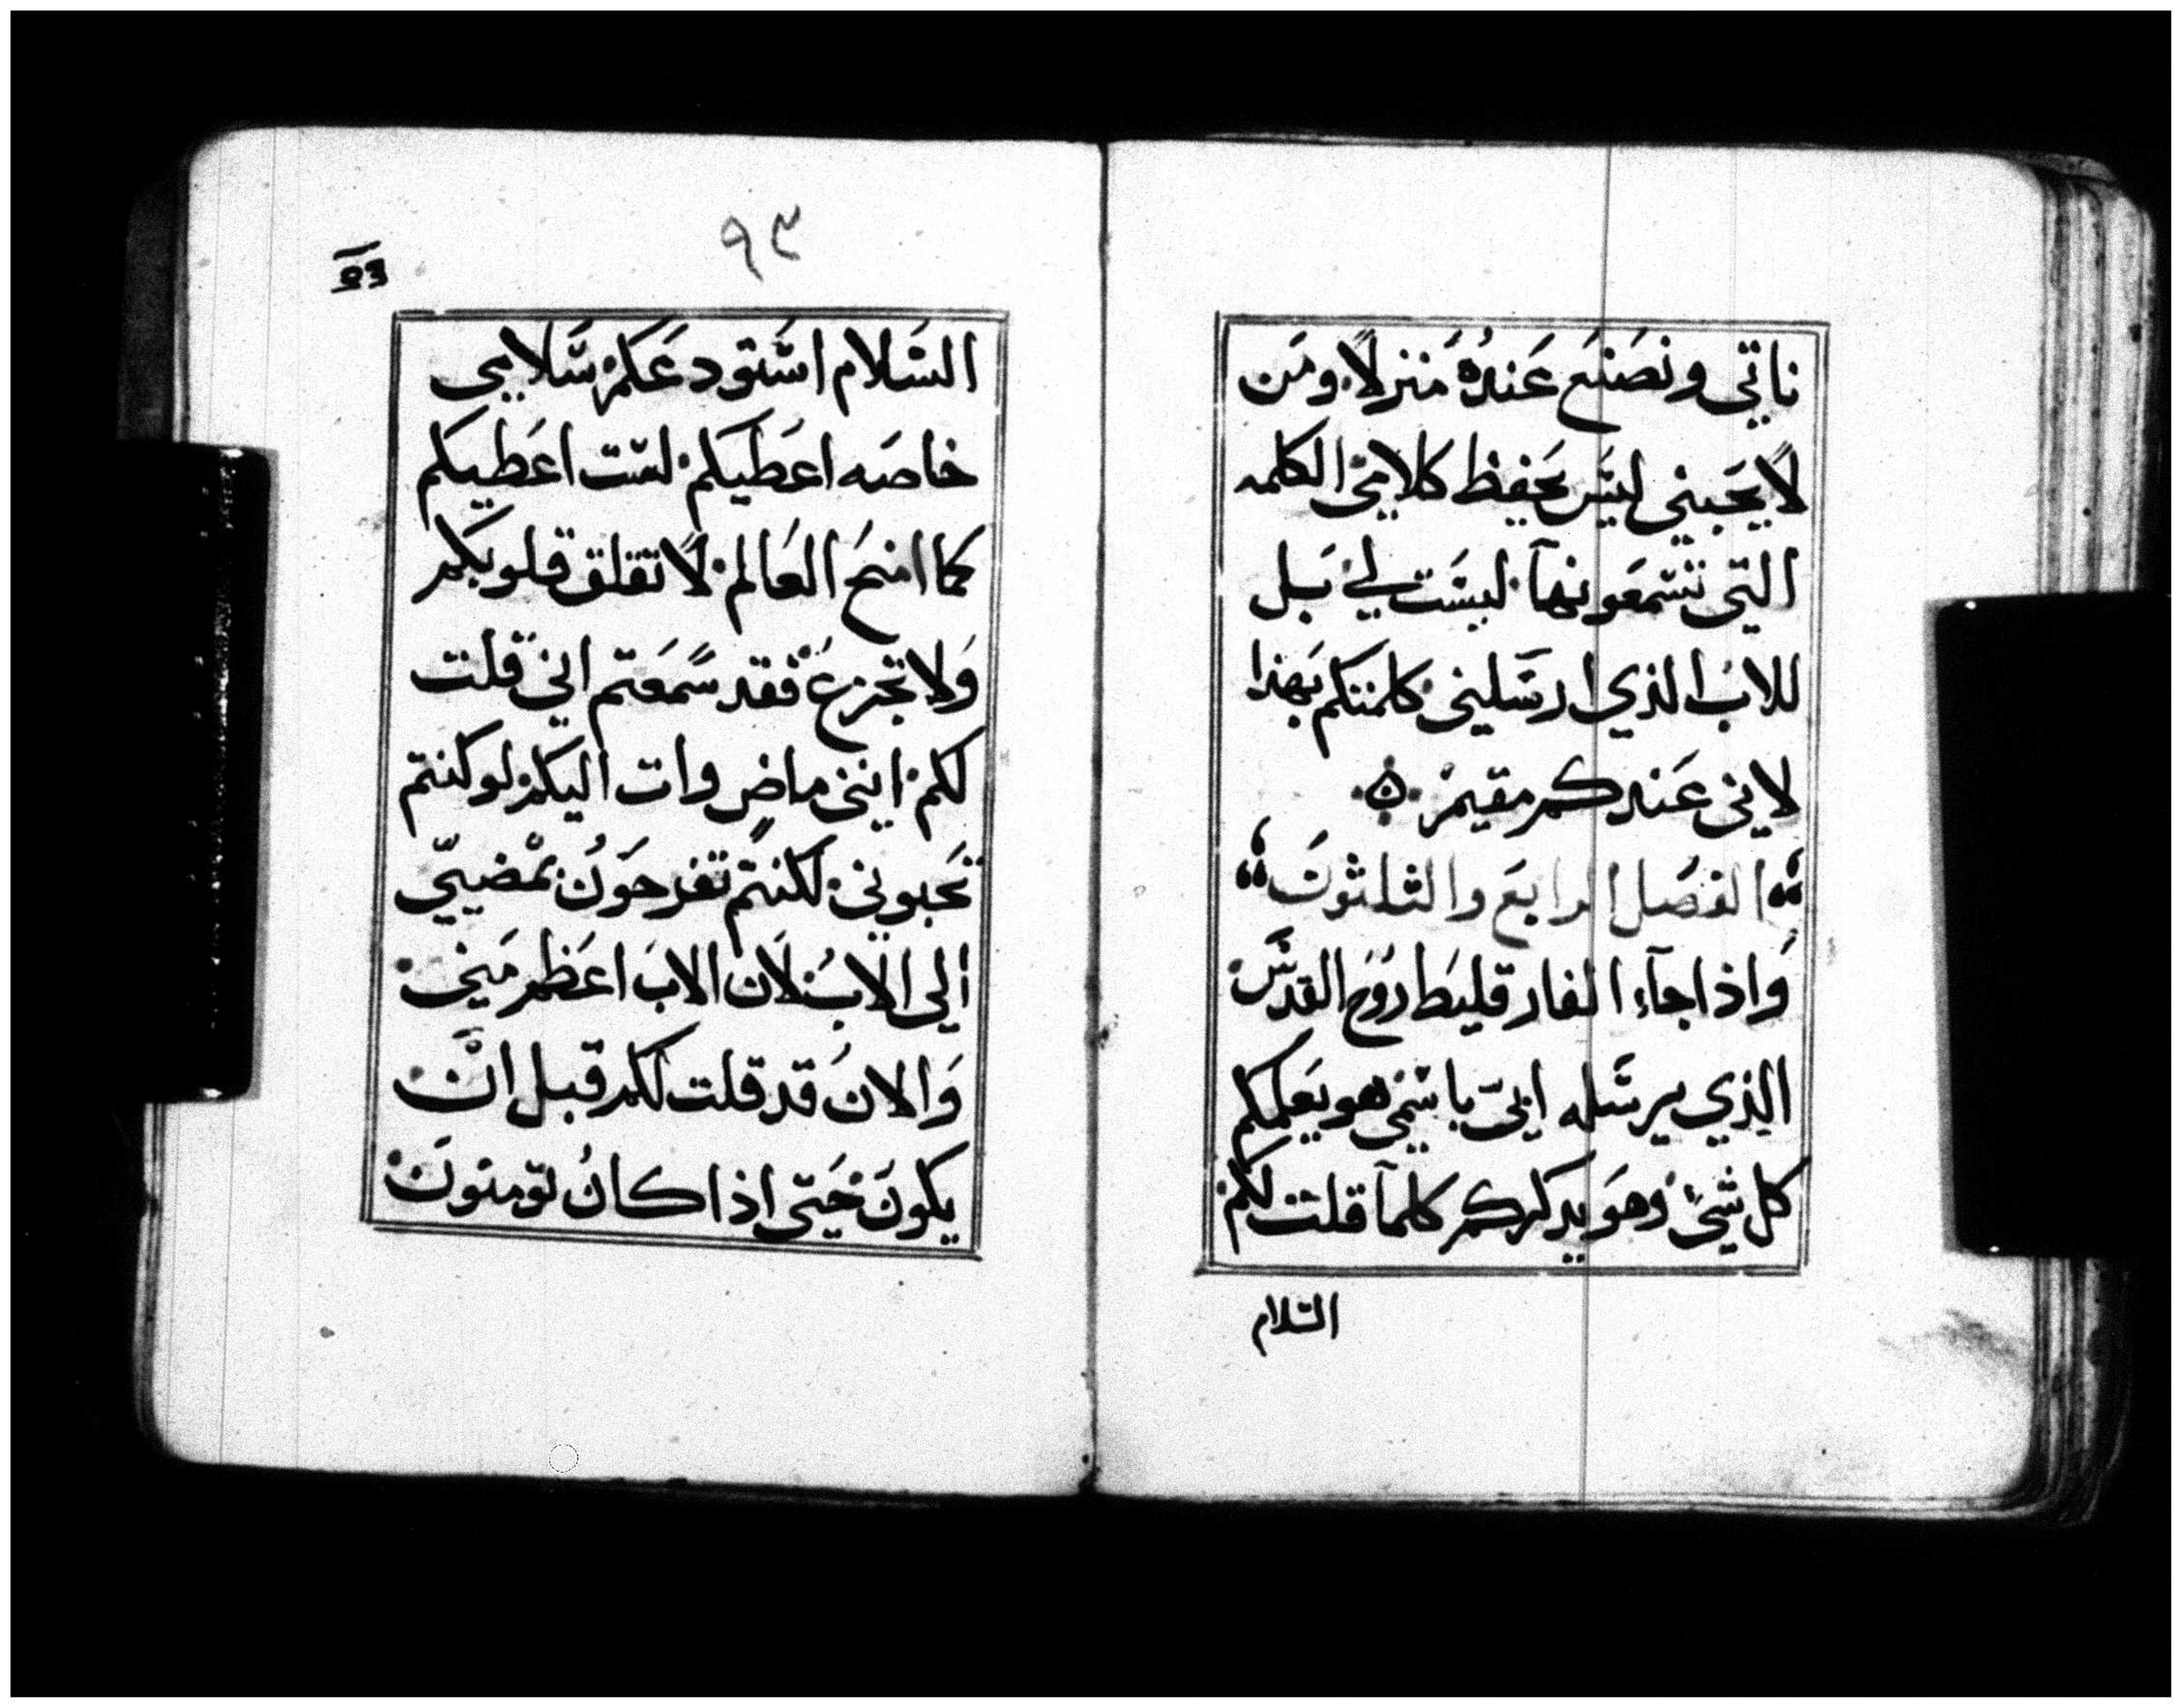 ناتي ونصنع عنده منزلا ومن
لا يحبني ليس يحفظ كلامي الكلمه
التي تسمعونها ليست لي بل
للاب الذي ارسلني كلمتكم بهذا
لاني عندكم مقيم
الفصل الرابع والثلثون
واذا جآء الفارقليط روح القدس
الذي يرسله ابي باسمي هو يعلمكم
كل شيء وهو يدكركم كلمآ قلت لكم
السلام
٩٣
السلام استودعكم سلامي
خاصه اعطيكم لست اعطيكم
كما امنح العالم لا تقلق قلوبكم
ولا تجزع فقد سمعتم اني قلت
لكم انني ماض وات اليكم لو كنتم
تحبوني لكنتم تفرحون بمضيي
الي الاب لان الاب اعظم مني
والان قد قلت لكم قبل ان
يكون حتي اذا كان تومنون